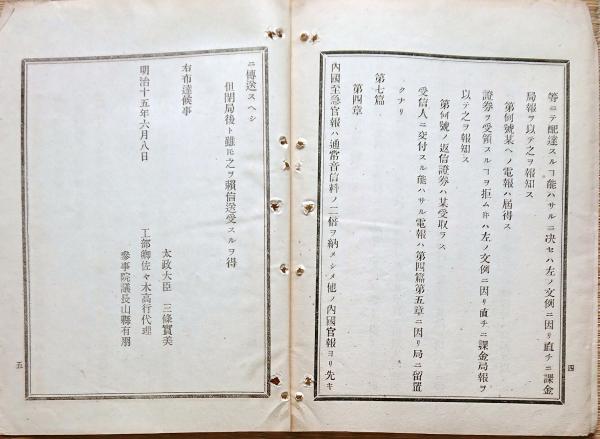 等ニテ配達スルヿ能ハサルニ决セハ左ノ文例ニ因リ直チニ課金
局報ヲ以テ之ヲ報知ス
第何號某ヘノ電報ハ屆得ス
證劵ヲ受領スルヿヲ拒ム𪜈ハ左ノ文例ニ因リ直チニ課金局報ヲ
以テ之ヲ報知ス
第何號ノ返信證劵ハ某受取ラス
受信人ニ交付スル能ハサル電報ハ第四篇第五章ニ因リ局ニ留置
クナリ
第七篇
第四章
內國至急官報ハ通常音信料ノ二倍ヲ納メシメ他ノ內國官報ヨリ先キ
四
ニ傳送スヘシ
但閉局後ト雖𪜈之ヲ賴信送受スルヲ得
右布達候事
明治十五年六月八日
太政大臣 三條實美
工部卿佐々木高行代理
參事院議長山縣有朋
五